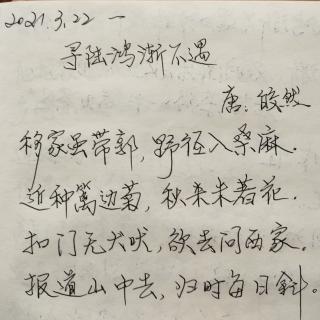 2021.3.22 一
寻陆鸿渐不遇
唐：皎然
移家虽带郭，野径入桑麻.
近种篱边菊，秋来未著花.
扣门无犬吠，欲去问西家.
报道山中去，归时每日斜。